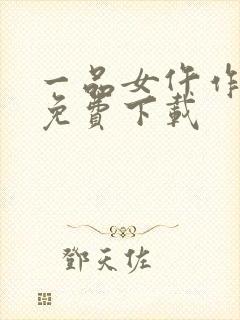 一品女仵作
免費下載
鄧天佐